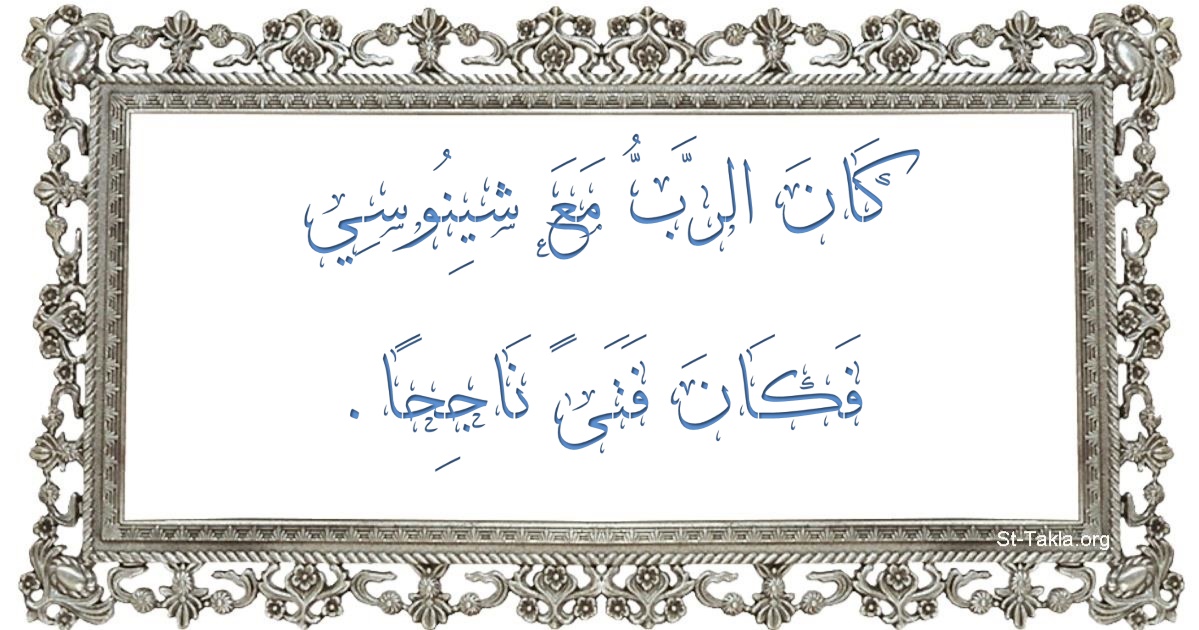 كَانَ الرَّبُّ مَعَ شِينُوسِي
فَكَانَ فَتَىً نَاجِحًا .
St-Takla.org